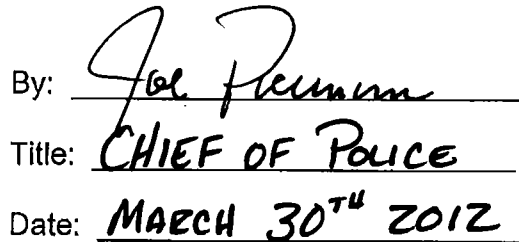 By: Joe
Title: CHIEF OF POLICE
Date: MARCH 30TH 2012